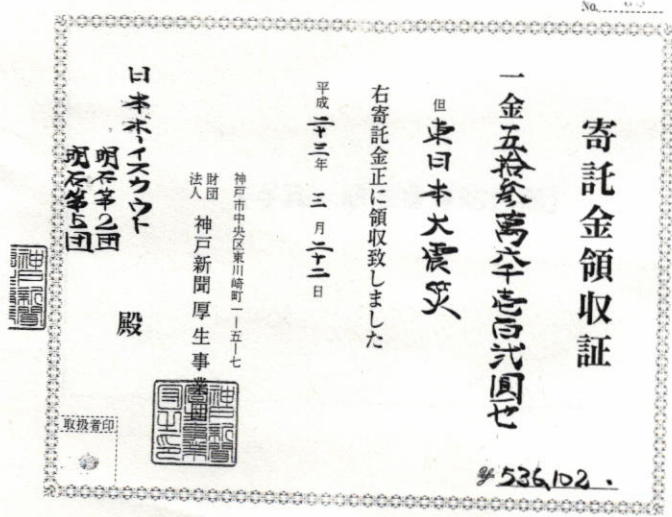 No.
寄託金領収証
一金五拾参萬六千壱百弐圓也
¥536,102.
但 東日本大震災
右寄託金正に領収致しました
平成二十三年三月二十二日
神戸市中央区東川崎町一―五―七
財団法人 神戸新聞厚生事業団
日本ボーイスカウト
明石第2団
明石第5団
殿
取扱者印